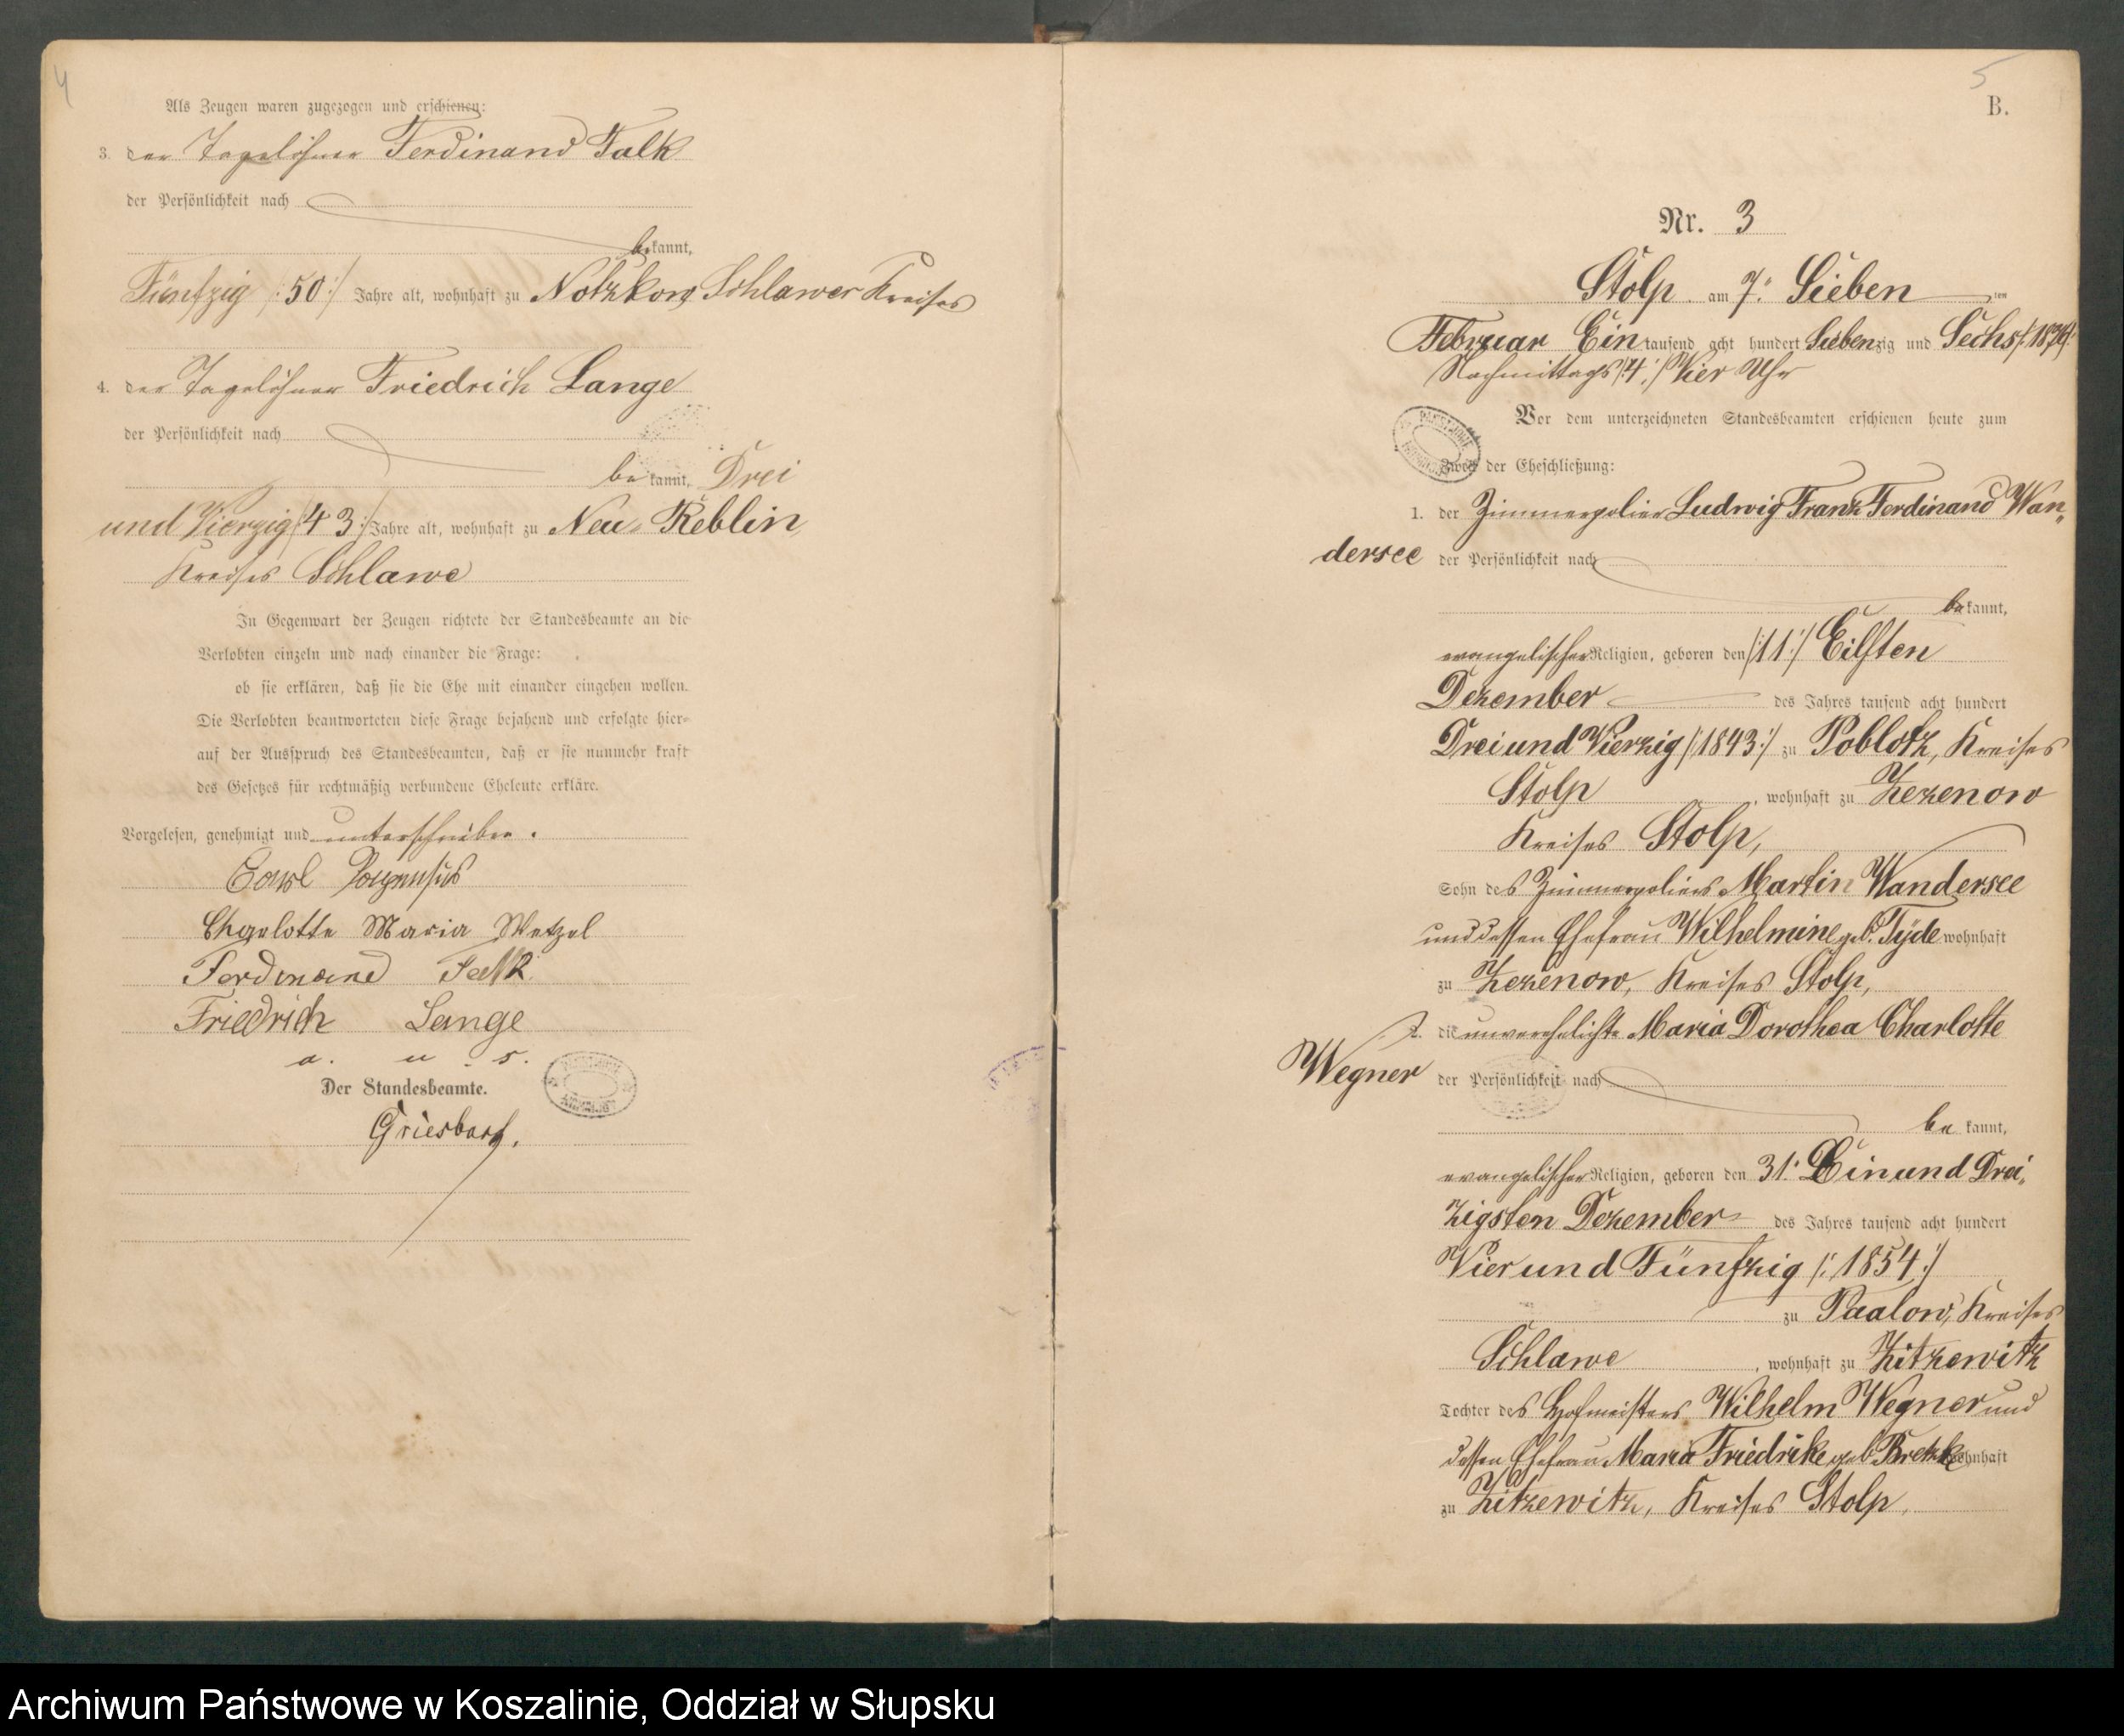 4
Als Zeugen waren zugezogen und erschienen:
3. der Tagelöhner Ferdinand Falk
der Persönlichkeit nach
bekannt,
Fünfzig /:50:/ Jahre alt, wohnhaft zu Notzkow, Schlawer Kreises
4. der Tagelöhner Friedrich Lange
der Persönlichkeit nach
bekannt, Drei
und Vierzig /:43:/ Jahre alt, wohnhaft zu Neu-Reblin,
Kreises Schlawe
In Gegenwart der Zeugen richtete der Standesbeamte an die
Verlobten einzeln und nach einander die Frage:
ob sie erklären, daß sie die Ehe mit einander eingehen wollen.
Die Verlobten beantworteten diese Frage bejahend und erfolgte hier-
auf der Ausspruch des Standesbeamten, daß er sie nunmehr kraft
des Gesetzes für rechtmäßig verbundene Eheleute erkläre.
Vorgelesen, genehmigt und unterschrieben.
Carl
Charlotte Maria Wetzel
Ferdinand Falk
Friedrich Lange
a. u. s.
Der Standesbeamte.
5
B.
Nr. 3
Stolp am 7. Sieben ten
Februar Ein tausend acht hundert Siebenzig und Sechs
Nachmittags /:4:/ Vier Uhr
Vor dem unterzeichneten Standesbeamten erschienen heute zum
Zweck der Eheschließung:
1. der Zimmerpolier Ludwig Franz Ferdinand Wan-
dersee der Persönlichkeit nach
bekannt,
evangelischer Religion, geboren den /:11:/ Eilften
Dezember des Jahres tausend acht hundert
Drei und Vierzig /:1843:/ zu Poblotz, Kreises
Stolp, wohnhaft zu Zezenow
Kreises Stolp,
Sohn des Zimmerpoliers Martin Wandersee
und dessen Ehefrau Wilhelmine geb. Tyde wohnhaft
zu Zezenow, Kreises Stolp,
2. die unverehelichte Maria Dorothea Charlotte
Wegner der Persönlichkeit nach
bekannt,
evangelischer Religion, geboren den 31. Ein und Drei-
zigsten Dezember des Jahres tausend acht hundert
Vier und Fünfzig /:1854:/
zu Paalow, Kreises
Schlawe, wohnhaft zu Zitzewitz
Tochter des Hofmeisters Wilhelm Wegner und
dessen Ehefrau Maria Friedrike geb. wohnhaft
zu Zitzewitz, Kreises Stolp,
Archiwum Państwowe w Koszalinie, Oddział w Słupsku